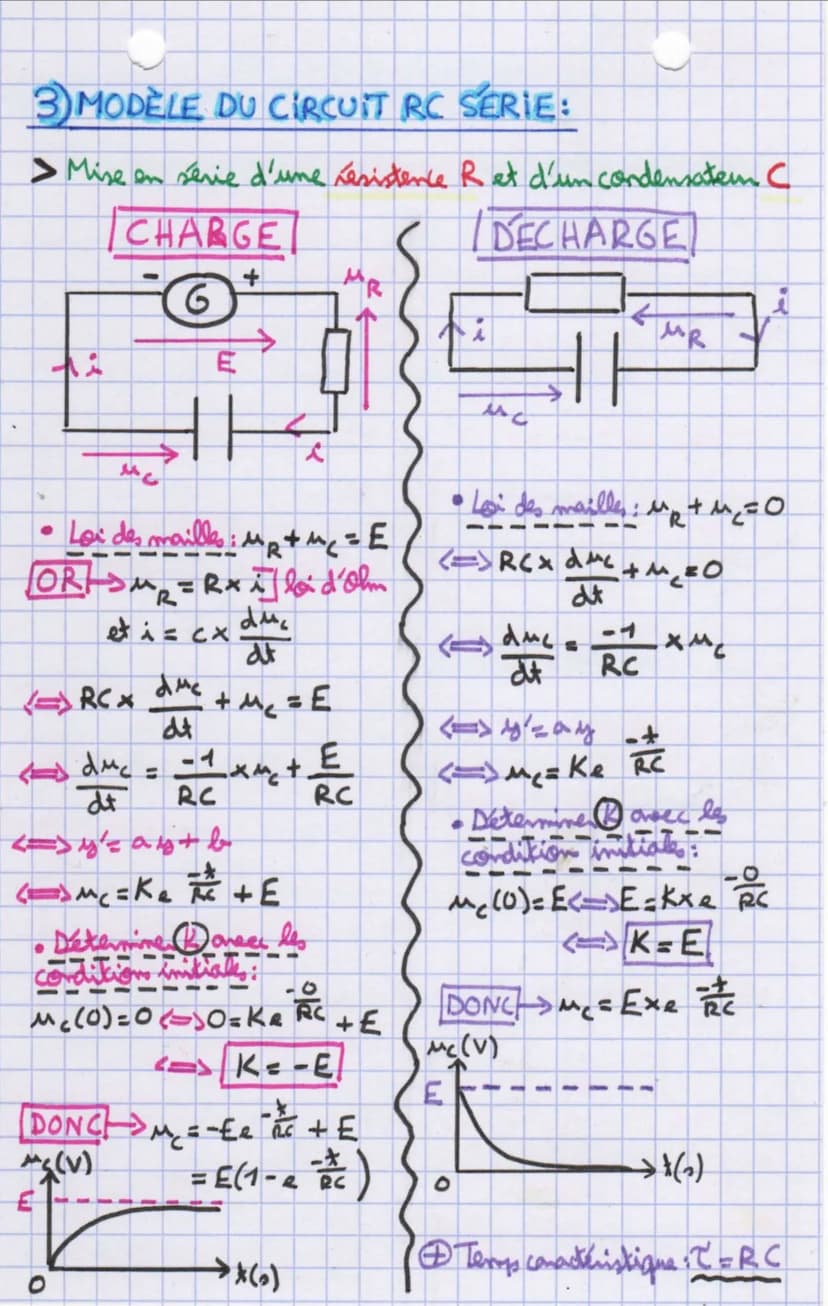 3) MODÈLE DU CIRCUIT RC SÉRIE :
> Mise en série d'une résistance R et d'un condensateur C
CHARGE
- +
G
u_R
E
i
i
u_C
• Loi des mailles : u_R + u_C = E
OR → u_R = R × i ] loi d'Ohm
et i = C × du_C/dt
⇔ RC × du_C/dt + u_C = E
⇔ du_C/dt = -1/RC × u_C + E/RC
⇔ y' = ay + b
⇔ u_C = K e^(-t/RC) + E
• Déterminer K avec les
conditions initiales :
u_C(0) = 0 ⇔ 0 = K e^(-0/RC) + E
⇔ K = -E
DONC → u_C = -E e^(-t/RC) + E
= E(1 - e^(-t/RC))
u_C(V)
E
0
t(s)
DÉCHARGE
i
i
u_R
u_C
• Loi des mailles : u_R + u_C = 0
⇔ RC × du_C/dt + u_C = 0
⇔ du_C/dt = -1/RC × u_C
⇔ y' = ay
⇔ u_C = K e^(-t/RC)
• Déterminer K avec les
condition initiales :
u_C(0) = E ⇔ E = K × e^(-0/RC)
⇔ K = E
DONC → u_C = E × e^(-t/RC)
u_C(V)
E
0
t(s)
⊕ Temps caractéristique : τ = RC